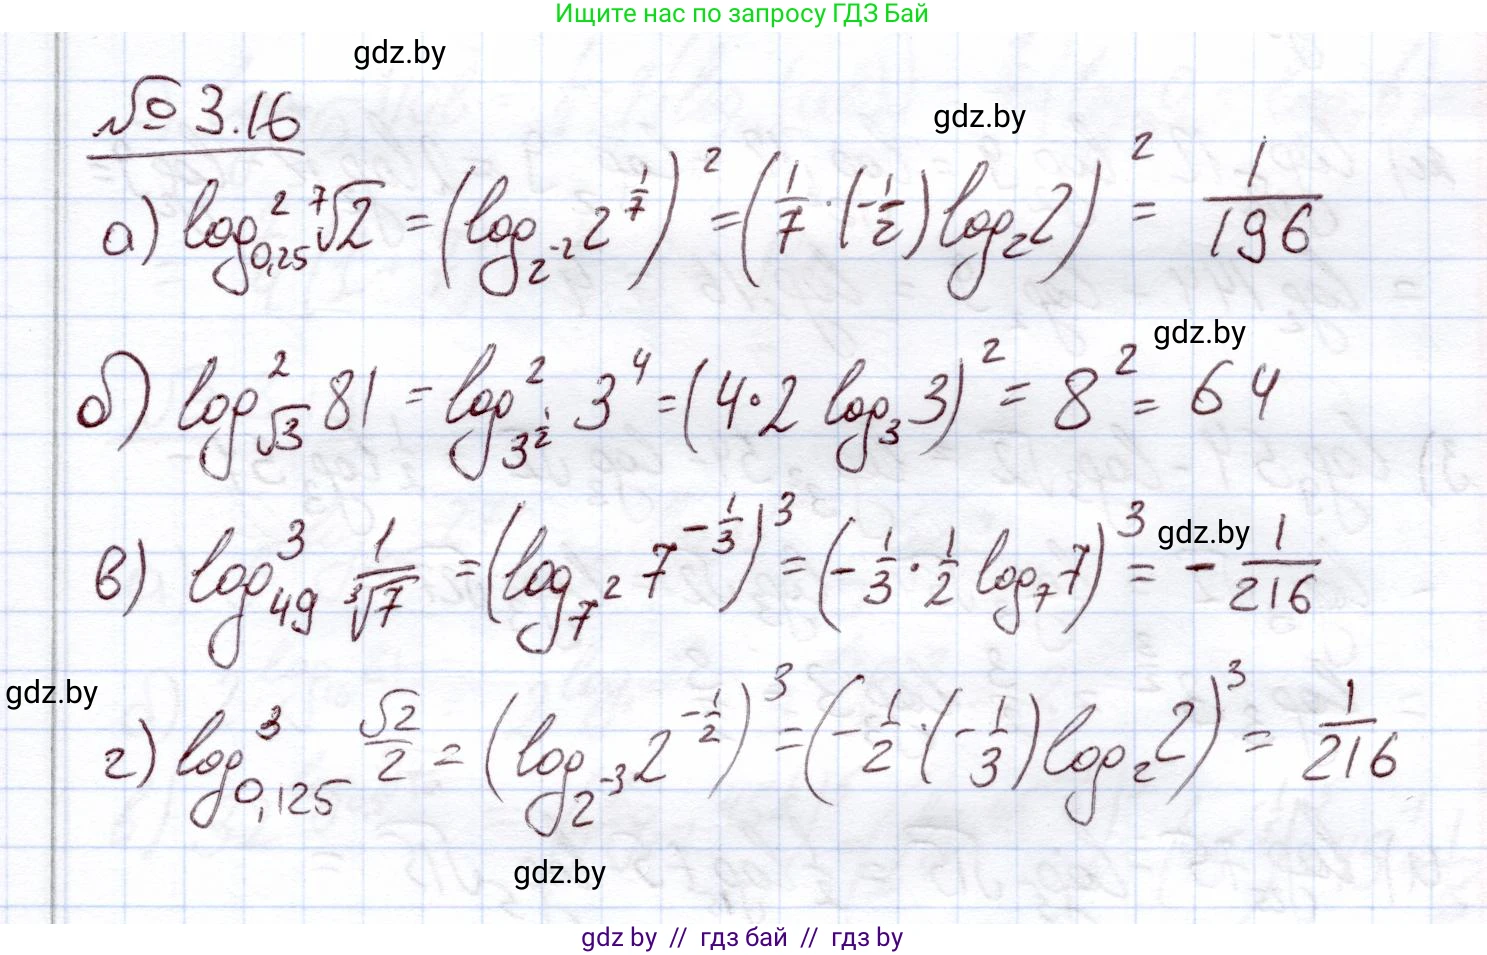 Ищите нас по запросу ГДЗ Бай
gdz.by
№ 3.16
gdz.by
а) log²_{0,25} ⁷√2 = (log_{2^{-2}} 2^{1/7})² = (1/7 · (-1/2) log_2 2)² = 1/196
gdz.by
б) log²_{√3} 81 = log²_{3^{1/2}} 3^4 = (4·2 log_3 3)² = 8² = 64
gdz.by
в) log³_{49} 1/³√7 = (log_{7^2} 7^{-1/3})³ = (-1/3 · 1/2 log_7 7)³ = -1/216
gdz.by
г) log³_{0,125} √2/2 = (log_{2^{-3}} 2^{-1/2})³ = (-1/2 · (-1/3) log_2 2)³ = 1/216
gdz.by
gdz by // гдз бай // гдз by